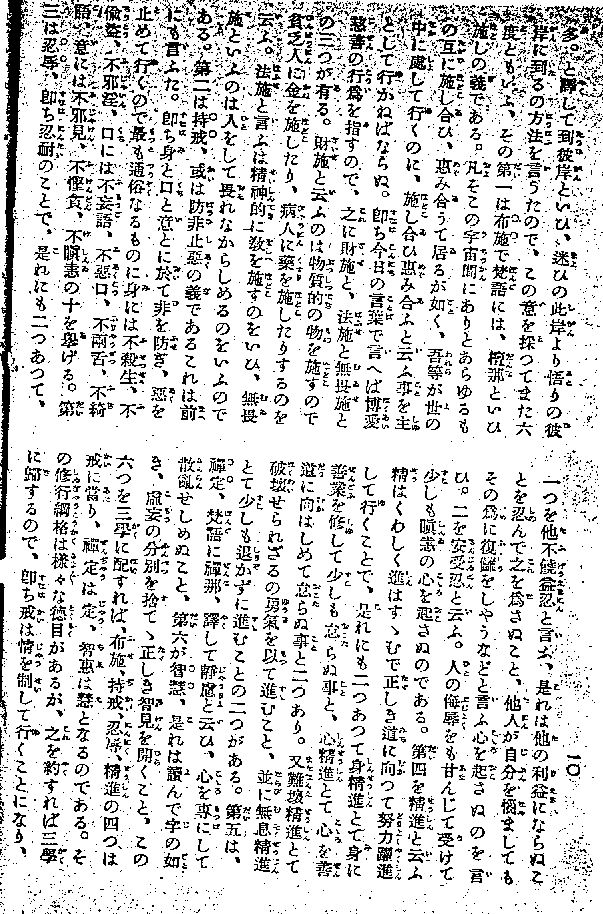 多。と譯して到彼岸といひ、迷ひの此岸より悟りの彼
岸に到るの方法を言うたので、この意を採つてまた六
度ともいふ、その第一は布施で梵語には、檀那といひ
施しの義である。凡そこの宇宙間にありとあらゆるも
の互に施し合ひ、惠み合うて居るが如く、吾等が世の
中に處して行くのに、施し合ひ惠み合ふと云ふ事を主
として行かねばならぬ。卽ち今日の言葉で言へば博愛
慈善の行爲を指すので、之に財施と、法施と無畏施と
の三つが有る。財施と云ふのは物質的の物を施すので
貧乏人に金を施したり、病人に藥を施したりするのを
云ふ。法施と言ふは精神的に敎を施すのをいひ、無畏
施といふのは人をして畏れなからしめるのをいふので
ある。第二は持戒、或は防非止惡の義であるこれは前
にも言ふた。卽ち身と口と意とに於て非を防ぎ、惡を
止めて行くので最も通俗なるものに身には不殺生、不
偸盜、不邪淫、口には不妄語、不惡口、不兩舌、不綺
語、意には不邪見、不慳貪、不瞋恚の十を擧げる。第
三は忍辱、卽ち忍耐のことで、是れにも二つあつて、
一〇
一つを他不饒益忍と言ふ、是れは他の利益にならぬこ
とを忍んで之を爲さぬこと、他人が自分を惱ましても
その爲に復讎をしやうなどと言ふ心を起さぬのを言
ひ。二を安受忍と云ふ。人の侮辱をも甘んじて受けて
少しも瞋恚の心を起さぬのである。第四を精進と云ふ
精はくわしく進はすゝむで正しき道に向つて努力躍進
して行くことで、是れにも二つあつて身精進とて身に
善業を修して少しも怠らぬ事と、心精進とて心を善
道に向はしめて怠らぬ事と二つあり。又難壞精進とて
破壞せられざるの勇氣を以て進むこと、並に無息精進
とて少しも退かずに進むことの二つがある。第五は、
禪定、梵語に禪那、譯して靜慮と云ひ、心を專にして
散亂せしめぬこと、第六が智慧、是れは讀んで字の如
き、虛妄の分別を捨てゝ正しき智見を開くこと、この
六つを三學に配すれば、布施、持戒、忍辱、精進の四つは
戒に當り、禪定は定、智惠は慧となるのである。そ
の修行綱格は樣々な德目があるが、之を約すれば三學
に歸するので、卽ち戒は情を制して行くことになり、